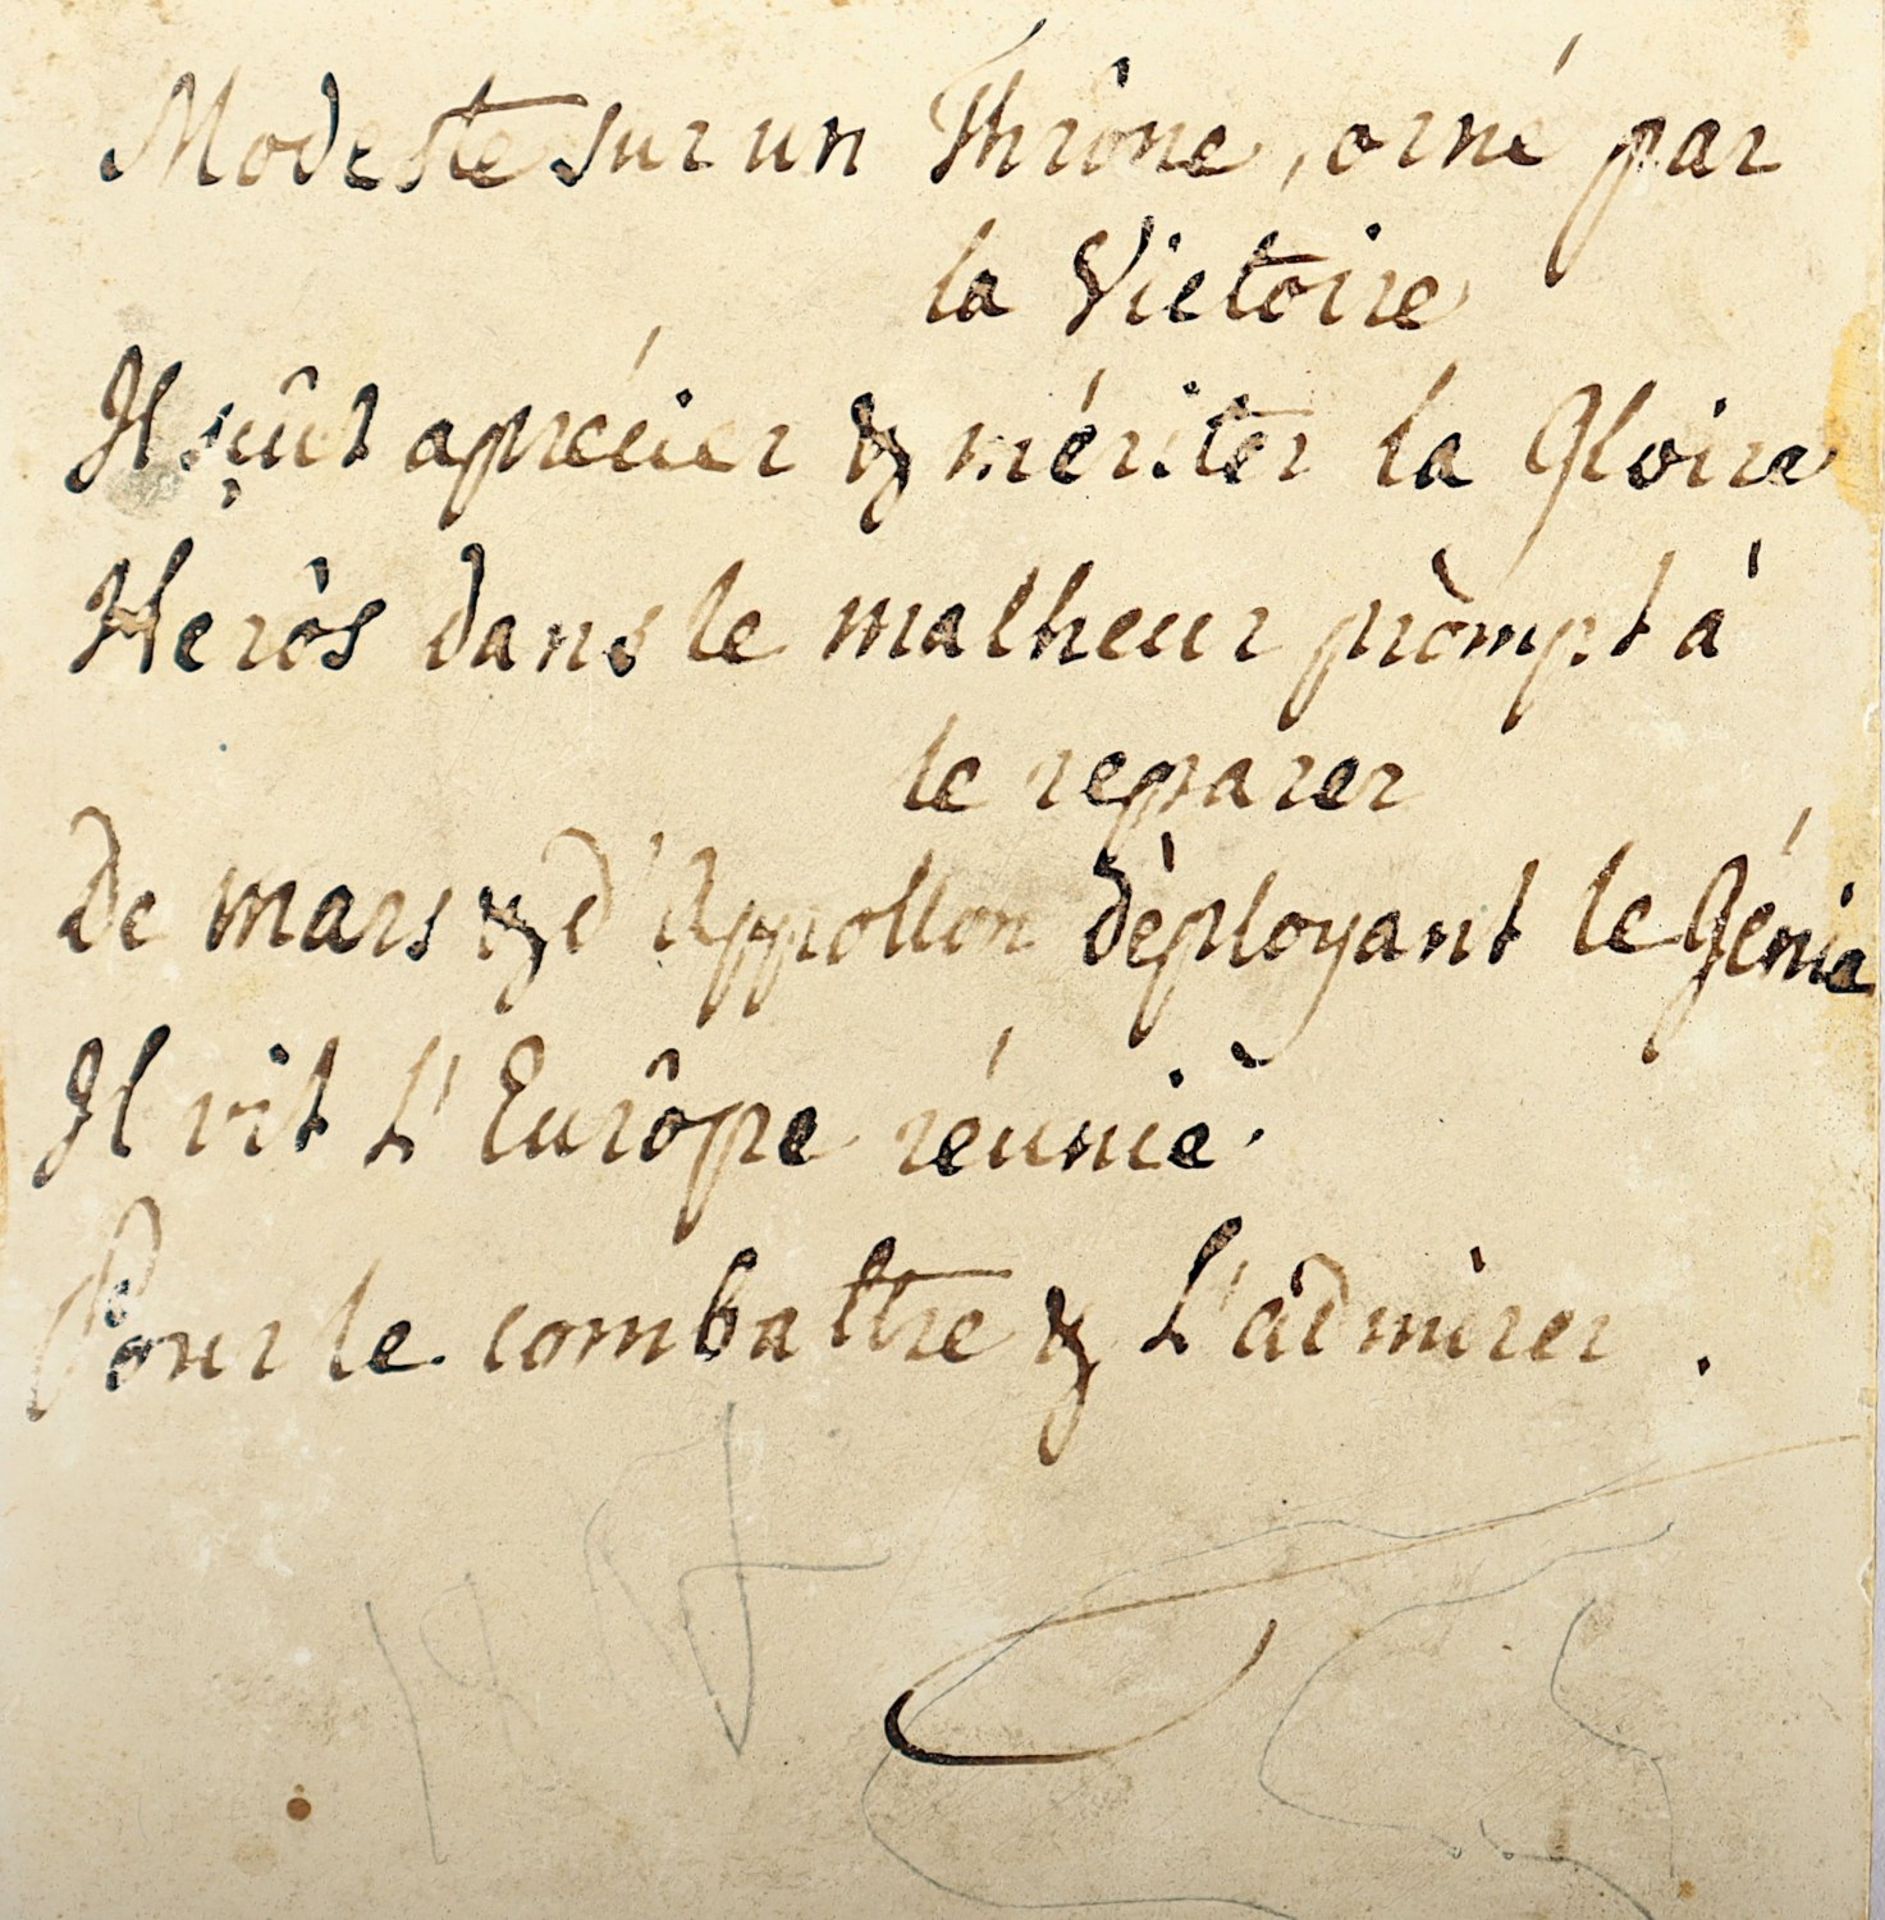 Modeste sur un Thrône, orné par
la Victoire
Il sçût apréciér & mériter la Gloire
Heròs dans le malheur pròmpt à
le reparer
De mars & d'Appollon dèployant le Génie
Il vit L'Eurôpe réuniè.
Pour le combattre & L'admirer.